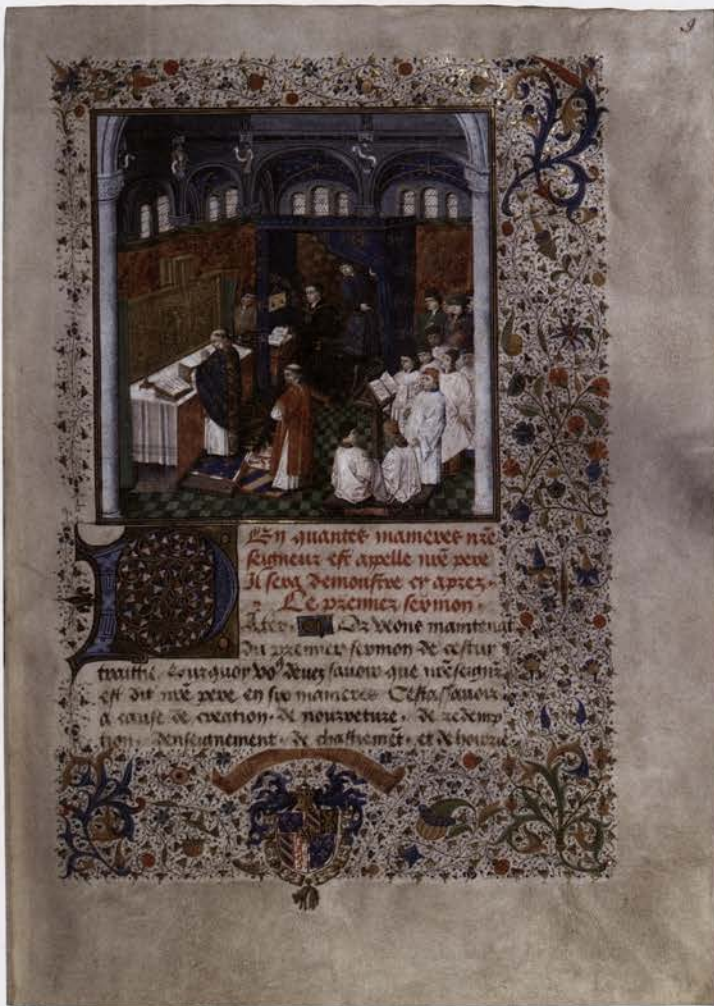 9
En quantes manieres nre
seigneur est appelle nre pere
Il sera demonstre cy aprez.
Le premier sermon.
Ater. Or veons maintenat
du premier sermon de cestuy
traittie. Pourquoy vo9 devez savoir que nre seignr
est dit nre pere en six manieres Cestassavoir
a cause de creation. de nourreture. de redemp
tion. densegnement. de chastiemet. et de